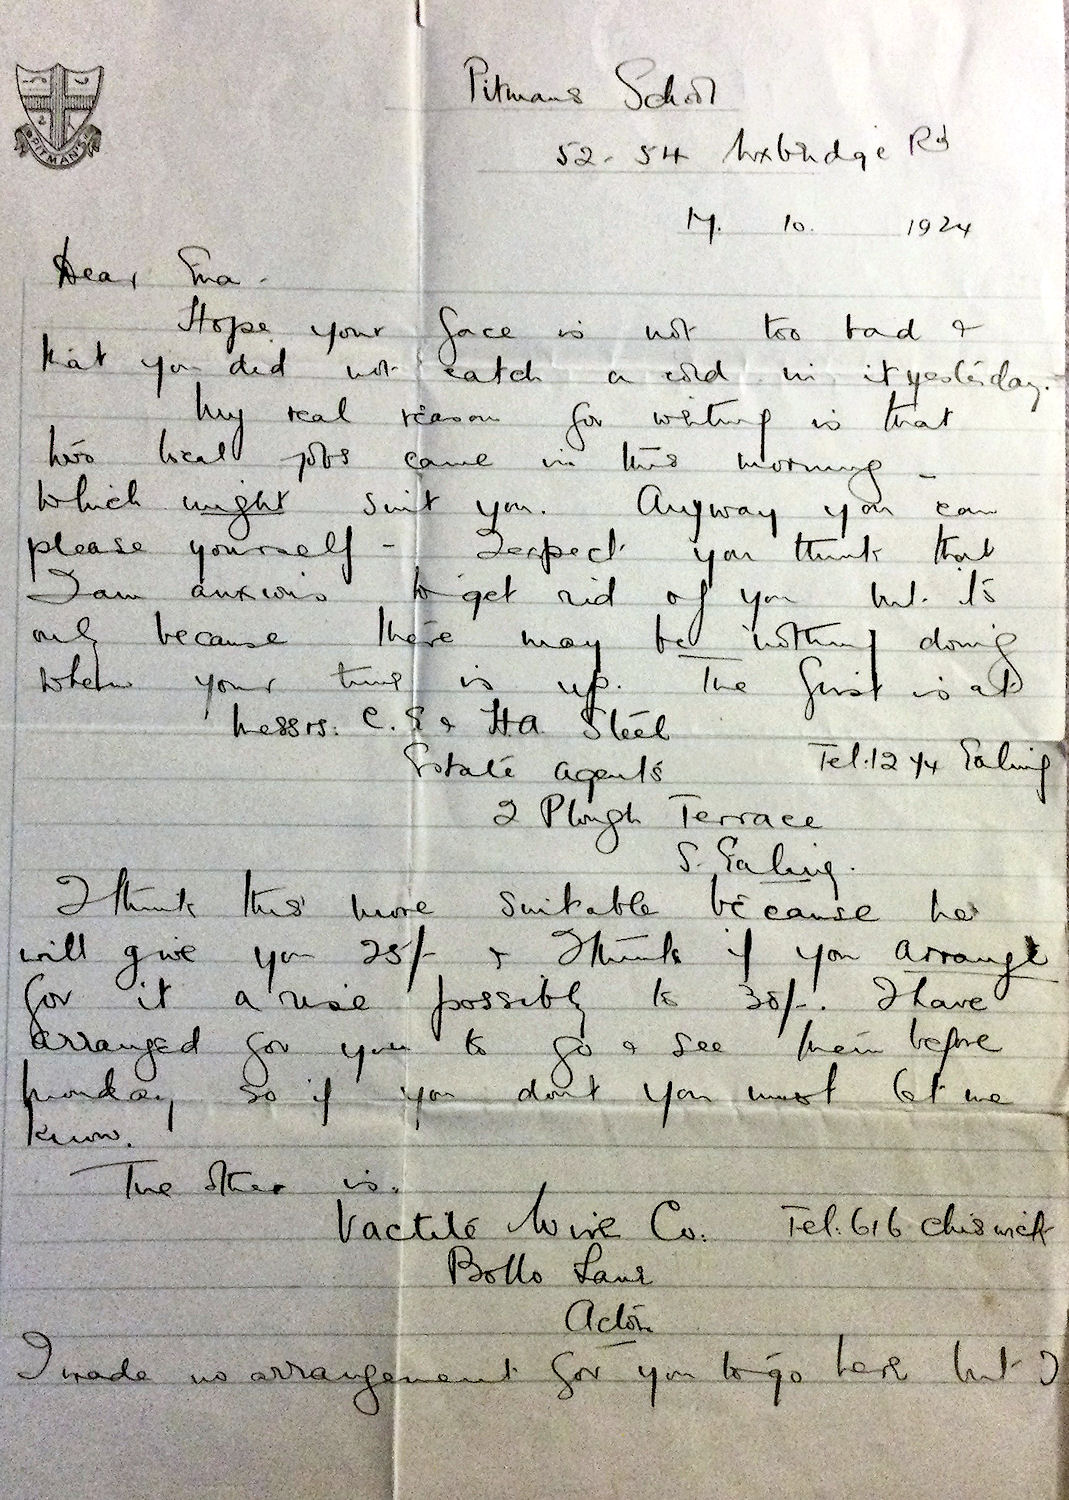 PITMAN'S
Pitmans School
52-54 Uxbridge Rd
17. 10. 1924
Dear Ena -
Hope your face is not too bad &
that you did not catch a cold in it yesterday.
My real reason for writing is that
two local jobs came in this morning -
which might suit you. Anyway you can
please yourself - I expect you think that
I am anxious to get rid of you but its
only because there may be nothing doing
when your time is up. The first is at
Messrs. C. E & H A. Steel
Estate Agents Tel: 1274 Ealing
2 Plough Terrace
S. Ealing.
I think this more suitable because he
will give you 25/- & I think if you arrange
for it a rise possibly to 30/-. I have
arranged for you to go & see them before
Monday so if you dont you must let me
know.
The other is.
Vactite Wire Co. Tel: 616 Chiswick
Bollo Lane
Acton
I made no arrangement for you to go here but I